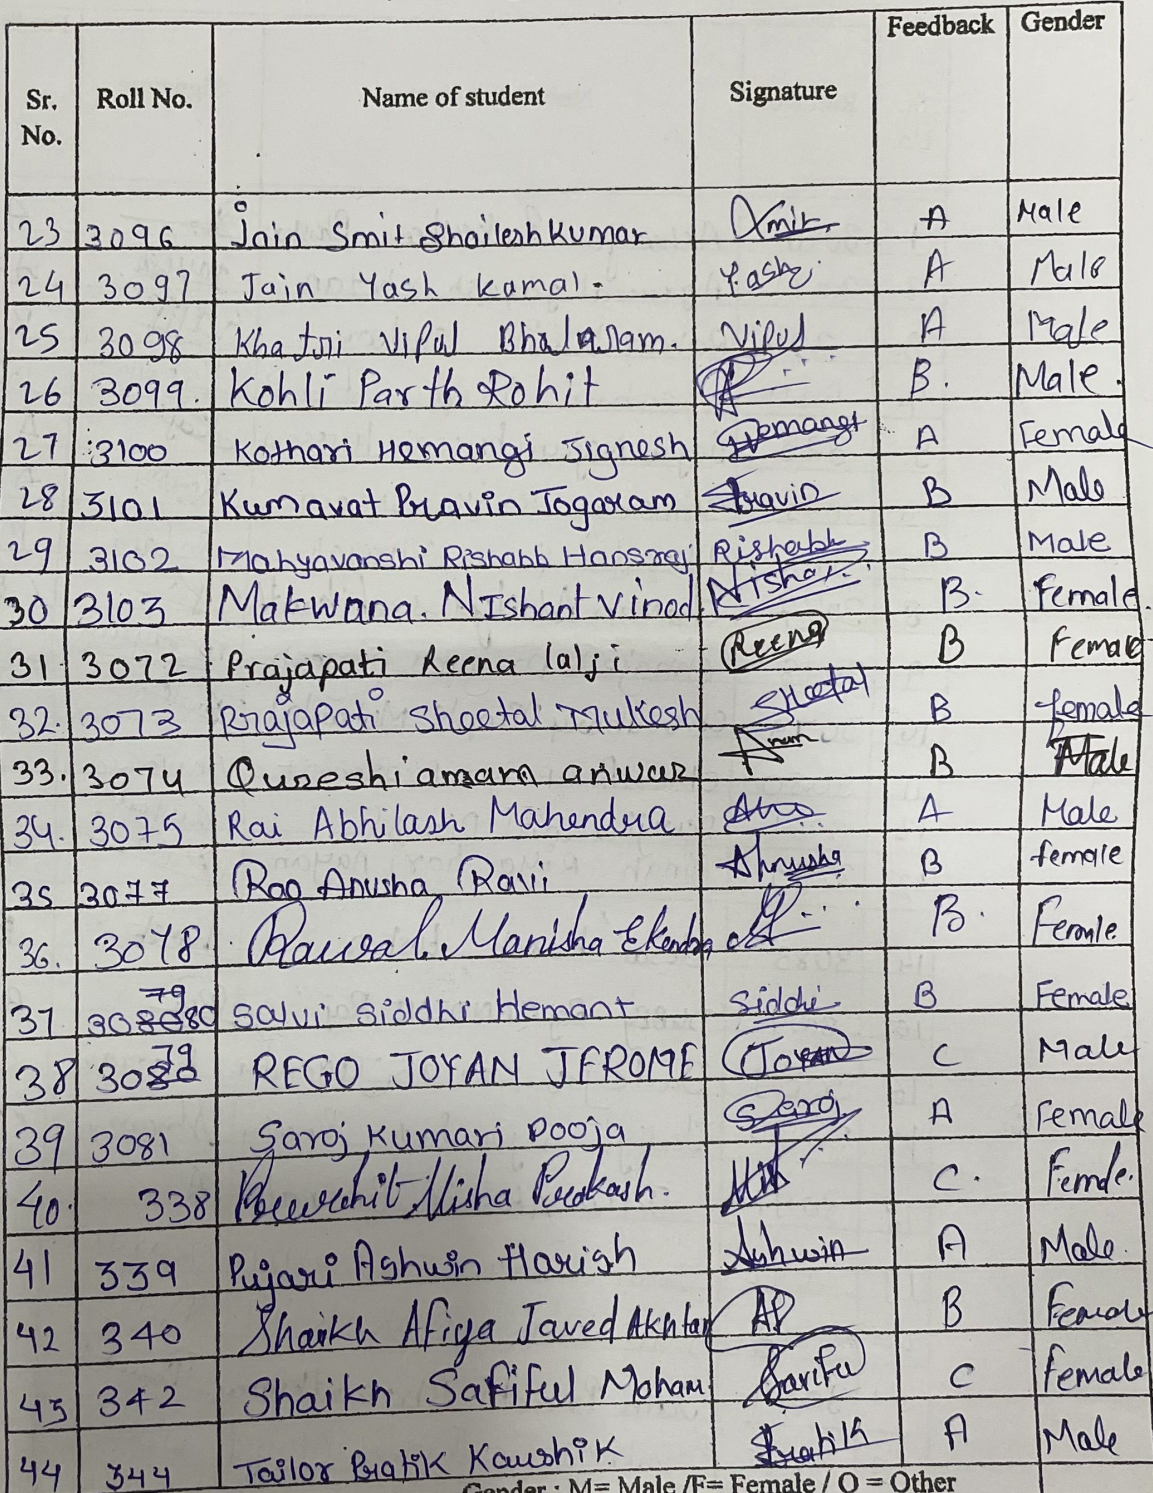 Sr. No. Roll No. Name of student Signature Feedback Gender
23 3096 Jain Smit Shaileshkumar Smit A Male
24 3097 Jain Yash Kamal. Yash A Male
25 3098 Khatri Vipul Bhalaram. Vipul A Male
26 3099. Kohli Parth Rohit B. Male.
27 3100 Kothari Hemangi Jignesh Hemangi A Female
28 3101 Kumavat Pravin Jogaram Pravin B Male
29 3102 Mahyavanshi Rishabh Hansraj Rishabh B Male
30 3103 Makwana. NIshant Vinod Nishant B. Female.
31 3072 Prajapati Reena lalji Reena B Female
32. 3073 Prajapati Sheetal Mukesh Sheetal B female
33. 3074 Qureshi amara anwar B Male
34. 3075 Rai Abhilash Mahendra A Male
35 3077 Rao Anusha Ravi Ahnusha B female
36. 3078 Rawal Manisha B. Female
37 79 308080 Salvi Siddhi Hemant Siddhi B Female
38 3079 REGO JOYAN JEROME Joyan C Male
39 3081 Saroj Kumari Pooja Saroj A Female
40. 338 Misha Prakash. C. Female.
41 339 Pujari Ashwin Harish Ashwin A Male.
42 340 Shaikh Afiya Javed Akhtar B Female
43 342 Shaikh Safiful Moham Sarifu C Female
44 344 Tailor Pratik Kaushik Pratik A Male
Gender : M= Male /F= Female / O = Other